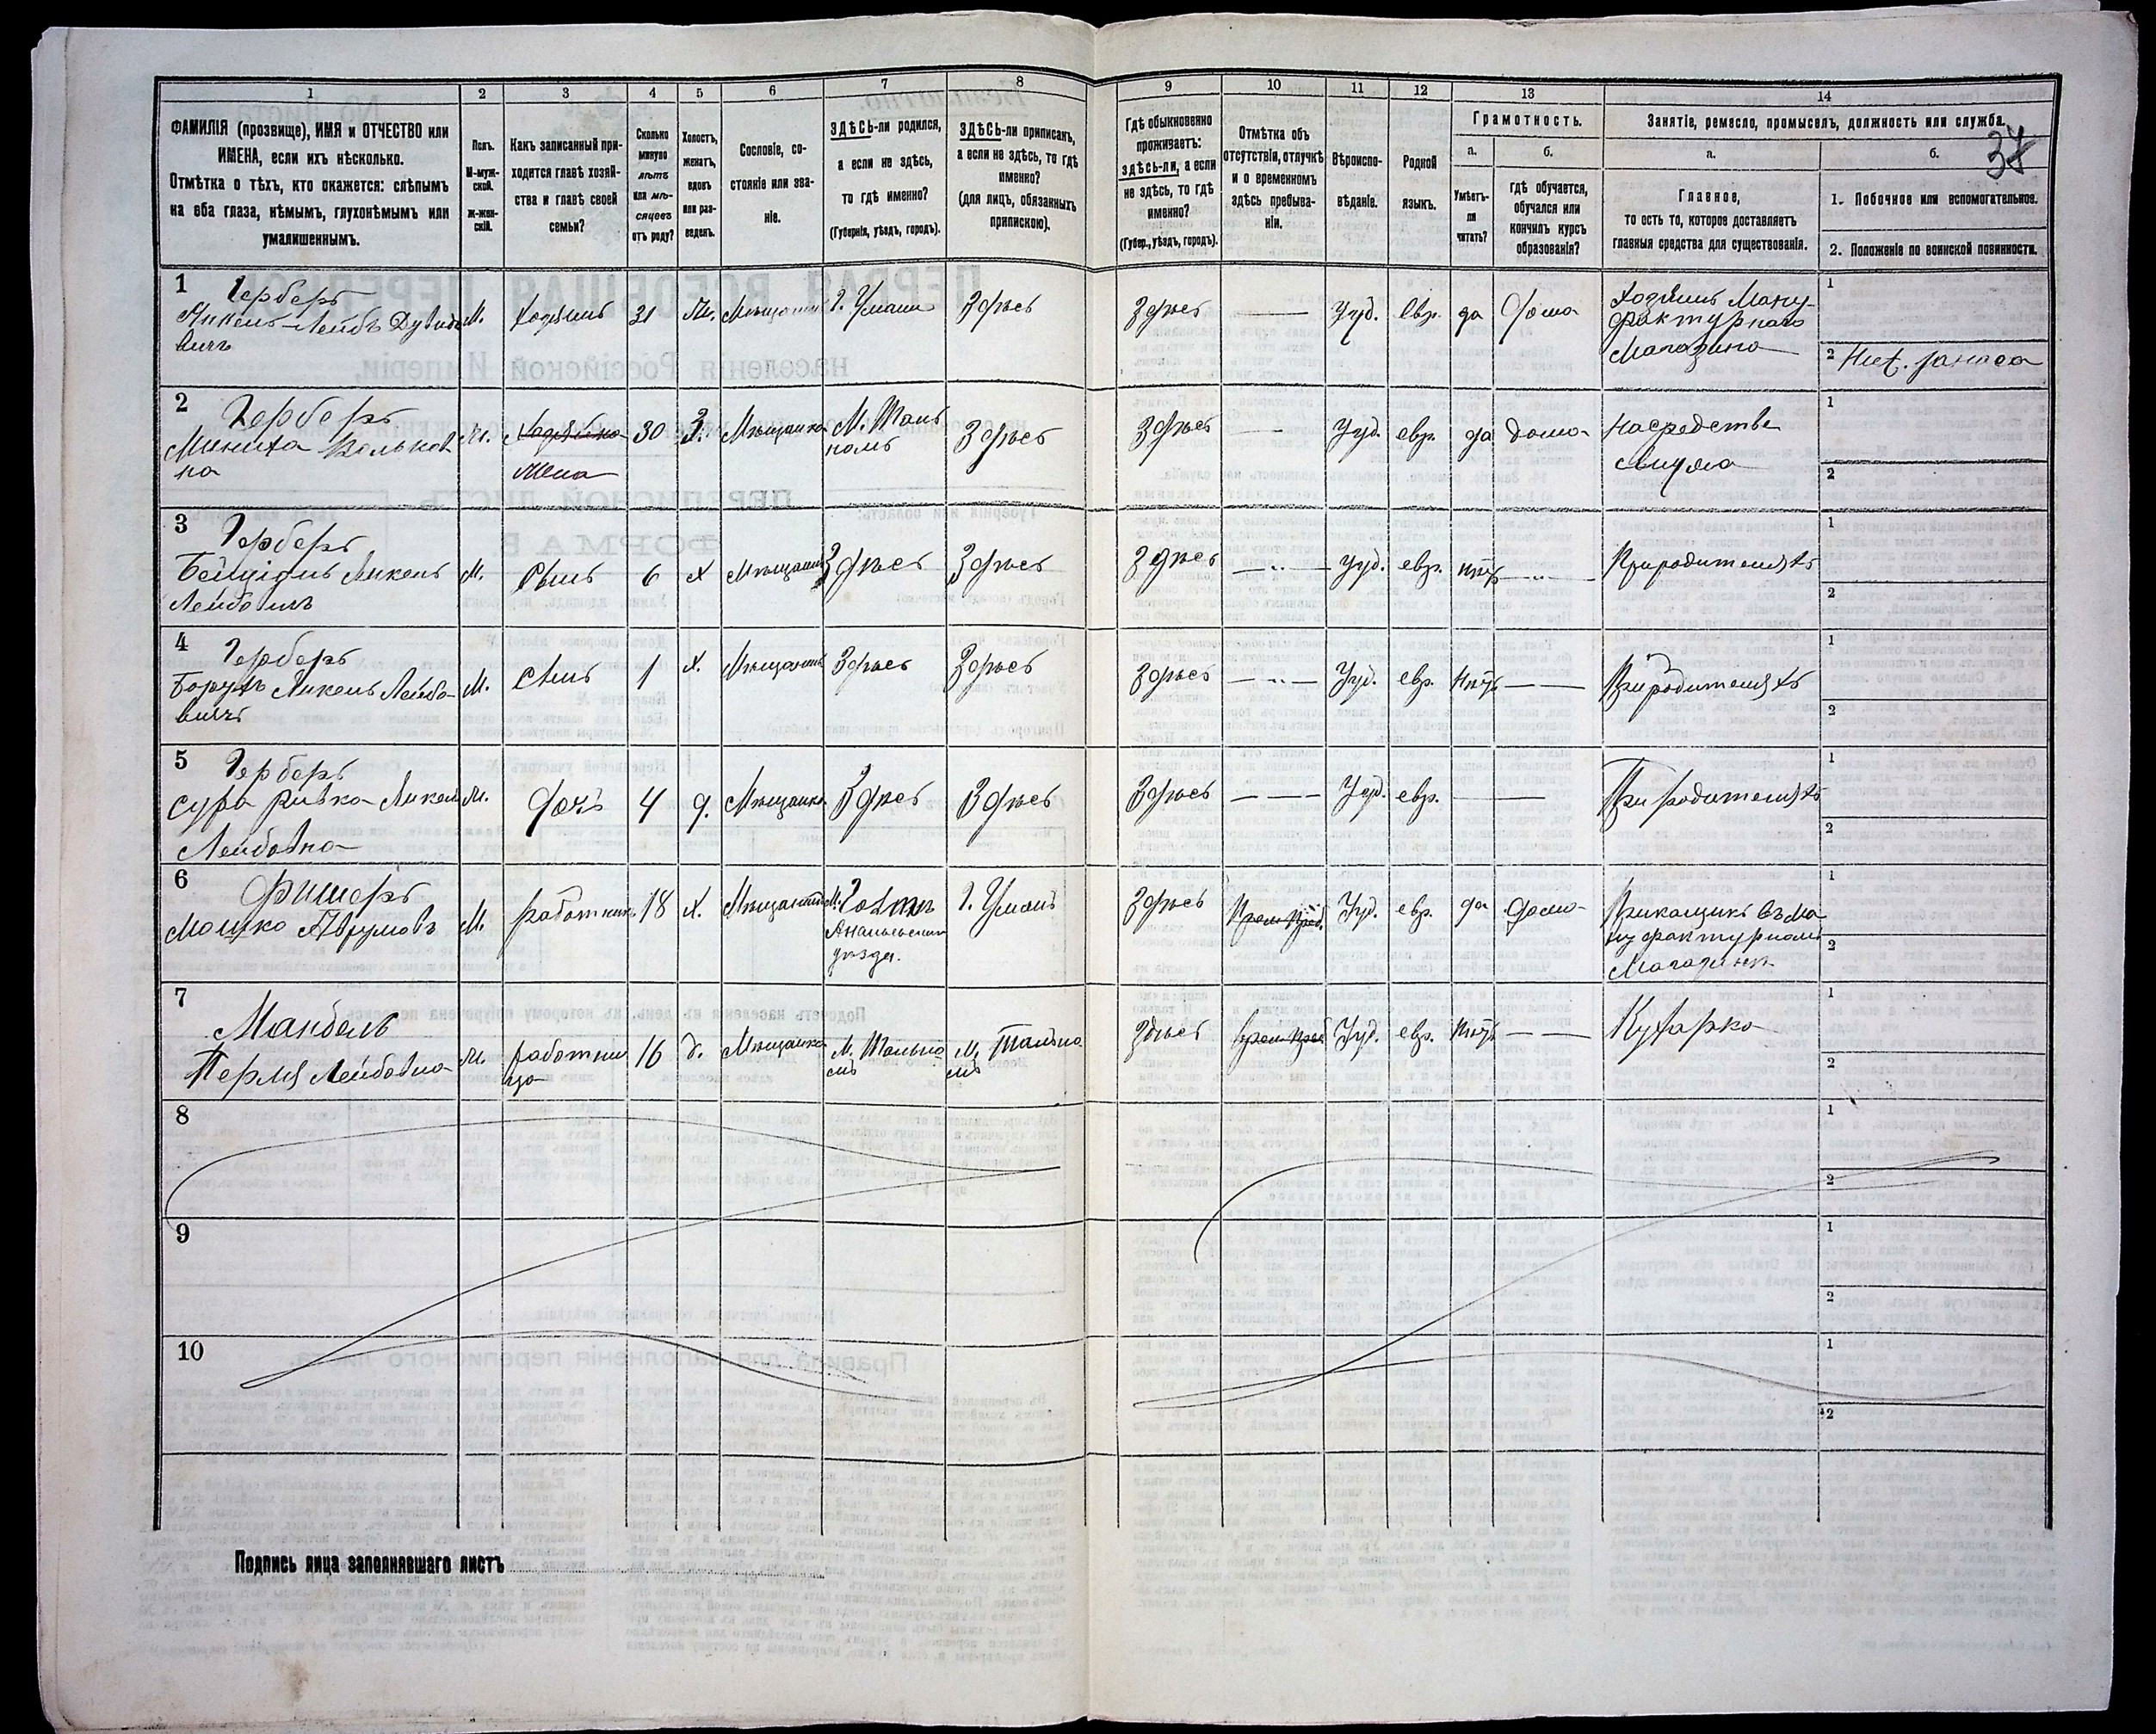 1 2 3 4 5 6 7 8 9 10 11 12 13 14
ФАМИЛІЯ (прозвище), ИМЯ и ОТЧЕСТВО или
ИМЕНА, если ихъ нѣсколько.
Отмѣтка о тѣхъ, кто окажется: слѣпымъ
на оба глаза, нѣмымъ, глухонѣмымъ или
умалишеннымъ.
Полъ.
М-муж-
ской.
ж-жен-
скій.
Какъ записанный при-
ходится главѣ хозяй-
ства и главѣ своей
семьи?
Сколько
минуло
лѣтъ
или мѣ-
сяцевъ
отъ роду?
Холостъ,
женатъ,
вдовъ
или раз-
веденъ.
Сословіе, со-
стояніе или зва-
ніе.
ЗДѢСЬ-ли родился,
а если не здѣсь,
то гдѣ именно?
(Губернія, уѣздъ, городъ).
ЗДѢСЬ-ли приписанъ,
а если не здѣсь, то гдѣ
именно?
(для лицъ, обязанныхъ
припискою).
Гдѣ обыкновенно
проживаетъ:
здѣсь-ли, а если
не здѣсь, то гдѣ
именно?
(Губер., уѣздъ, городъ).
Отмѣтка объ
отсутствіи, отлучкѣ
и о временномъ
здѣсь пребыва-
ніи.
Вѣроиспо-
вѣданіе.
Родной
языкъ.
Грамотность.
а.
Умѣетъ-
ли
читать?
б.
гдѣ обучается,
обучался или
кончилъ курсъ
образованія?
Занятіе, ремесло, промыселъ, должность или служба.
37
а.
Главное,
то есть то, которое доставляетъ
главныя средства для существованія.
б.
1. Побочное или вспомогательное.
2. Положеніе по воинской повинности.
1 Герберъ
Янкель-Лейбъ Дувидо
вичъ
М.
Хозяинъ
31
Ж.
Мѣщанинъ
г. Умани
Здѣсь
Здѣсь
Іуд.
Евр.
да
дома
Хозяинъ Ману-
фактурнаго
Магазина
1
2
2 Герберъ
Вольков
на
Хозяйка
Жена
30
З.
Мѣщанка
М. Таль
номъ
Здѣсь
Здѣсь
Іуд.
евр.
да
дома
На средства
мужа
1
2
3 Герберъ
Янкель
Лейбовичъ
М.
Сынъ
6
Х
Мѣщанинъ
Здѣсь
Здѣсь
Здѣсь
Іуд.
евр.
нѣтъ
При родителяхъ
1
2
4 Герберъ
Борухъ Янкель Лейбо-
вичъ
М.
Сынъ
1
Х.
Мѣщанинъ
Здѣсь
Здѣсь
Здѣсь
Іуд.
евр.
нѣтъ
При родителяхъ
1
2
5 Герберъ
Сура Ривка Янкель
Лейбовна
дочь
4
д.
Мѣщанка
Здѣсь
Здѣсь
Здѣсь
Іуд.
евр.
При родителяхъ
1
2
6 Фишеръ
Мошко Аврумовъ
М.
работникъ
18
Х.
Мѣщанинъ
уѣзда.
г. Умань
Здѣсь
Врем. преб.
Іуд.
евр.
да
дома
Прикащикъ въ Ма
нуфактурномъ
Магазинѣ
1
2
7
Лейбовна
работни
ца
16
д.
Мѣщанка
М. Тально
мъ
М. Тально
мъ
Здѣсь
Врем. преб
Іуд.
евр.
Нѣтъ
Кухарка
1
2
8
1
2
9
1
2
10
1
2
Подпись лица заполнявшаго листъ